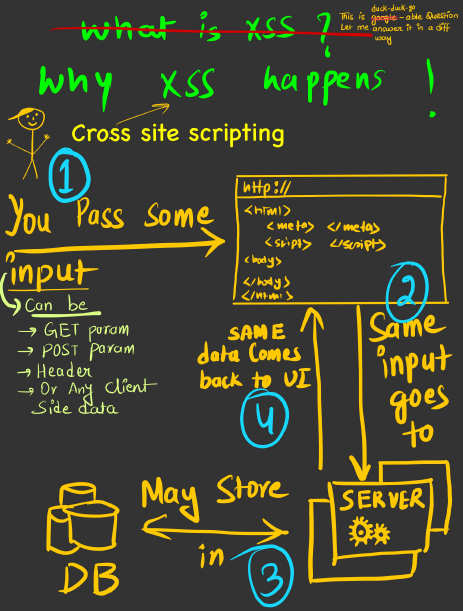 What is XSS ?
duck-duck-go
This is google-able Question
Let me answer it in a diff
way
Why XSS happens !
Cross site scripting
1
You Pass Some
input
Can be
→ GET param
→ POST param
→ Header
→ Or Any Client
Side data
http://
<html>
<meta> </meta>
<sript> </script>
<body>
</body>
</html>
2
Same
input
goes
to
SAME
data Comes
back to UI
4
May Store
in
3
DB
SERVER